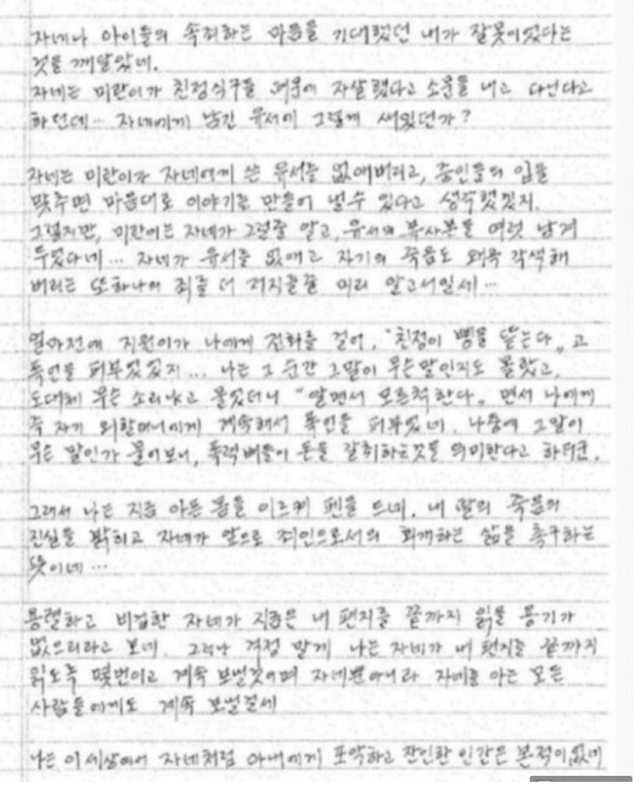 자네나 아이들의 속죄하는 마음을 기대했던 내가 잘못이었다는
것을 깨달았네.
자네는 미란이가 친정식구들 때문에 자살했다고 소문을 내고 다닌다고
하던데... 자네에게 남긴 유서에 그렇게 써있던가?
자네는 미란이가 자네에게 쓴 유서를 없애버리고, 증인들의 입을
맞추면 마음대로 이야기를 만들어 낼수 있다고 생각했겠지.
그렇지만, 미란이는 자네가 그럴줄 알고, 유서의 복사본을 여럿 남겨
두었다네... 자네가 유서를 없애고 자기의 죽음도 왜곡 각색해
버리는 또하나의 죄를 더 저지를줄 미리 알고서일세...
얼마전에 지원이가 나에게 전화를 걸어, "친정이 삥을 뜯는다" 고
폭언을 퍼부었었지... 나는 그 순간 그말이 무슨말인지도 몰랐고,
도대체 무슨 소리냐고 물었더니 "알면서 모르척한다" 면서 나에게
즉 자기 외할머니에게 계속해서 폭언을 퍼부었네. 나중에 그말이
무슨 말인가 물어보니, 폭력배들이 돈을 갈취하는것을 의미한다고 하더군.
그래서 나는 지금 아픈 몸을 이르켜 펜을 드네. 내 딸의 죽음의
진실을 밝히고 자네가 앞으로 죄인으로서의 회개하는 삶을 촉구하는
뜻이네...
용렬하고 비겁한 자네가 지금은 내 편지를 끝까지 읽을 용기가
없으리라고 보네. 그러나 걱정 말게 나는 자네가 내 편지를 끝까지
읽도록 몇번이고 계속 보낼것이며 자네뿐아니라 자네를 아는 모든
사람들에게도 계속 보낼걸세
나는 이세상에서 자네처럼 아내에게 포악하고 잔인한 인간은 본적이없네